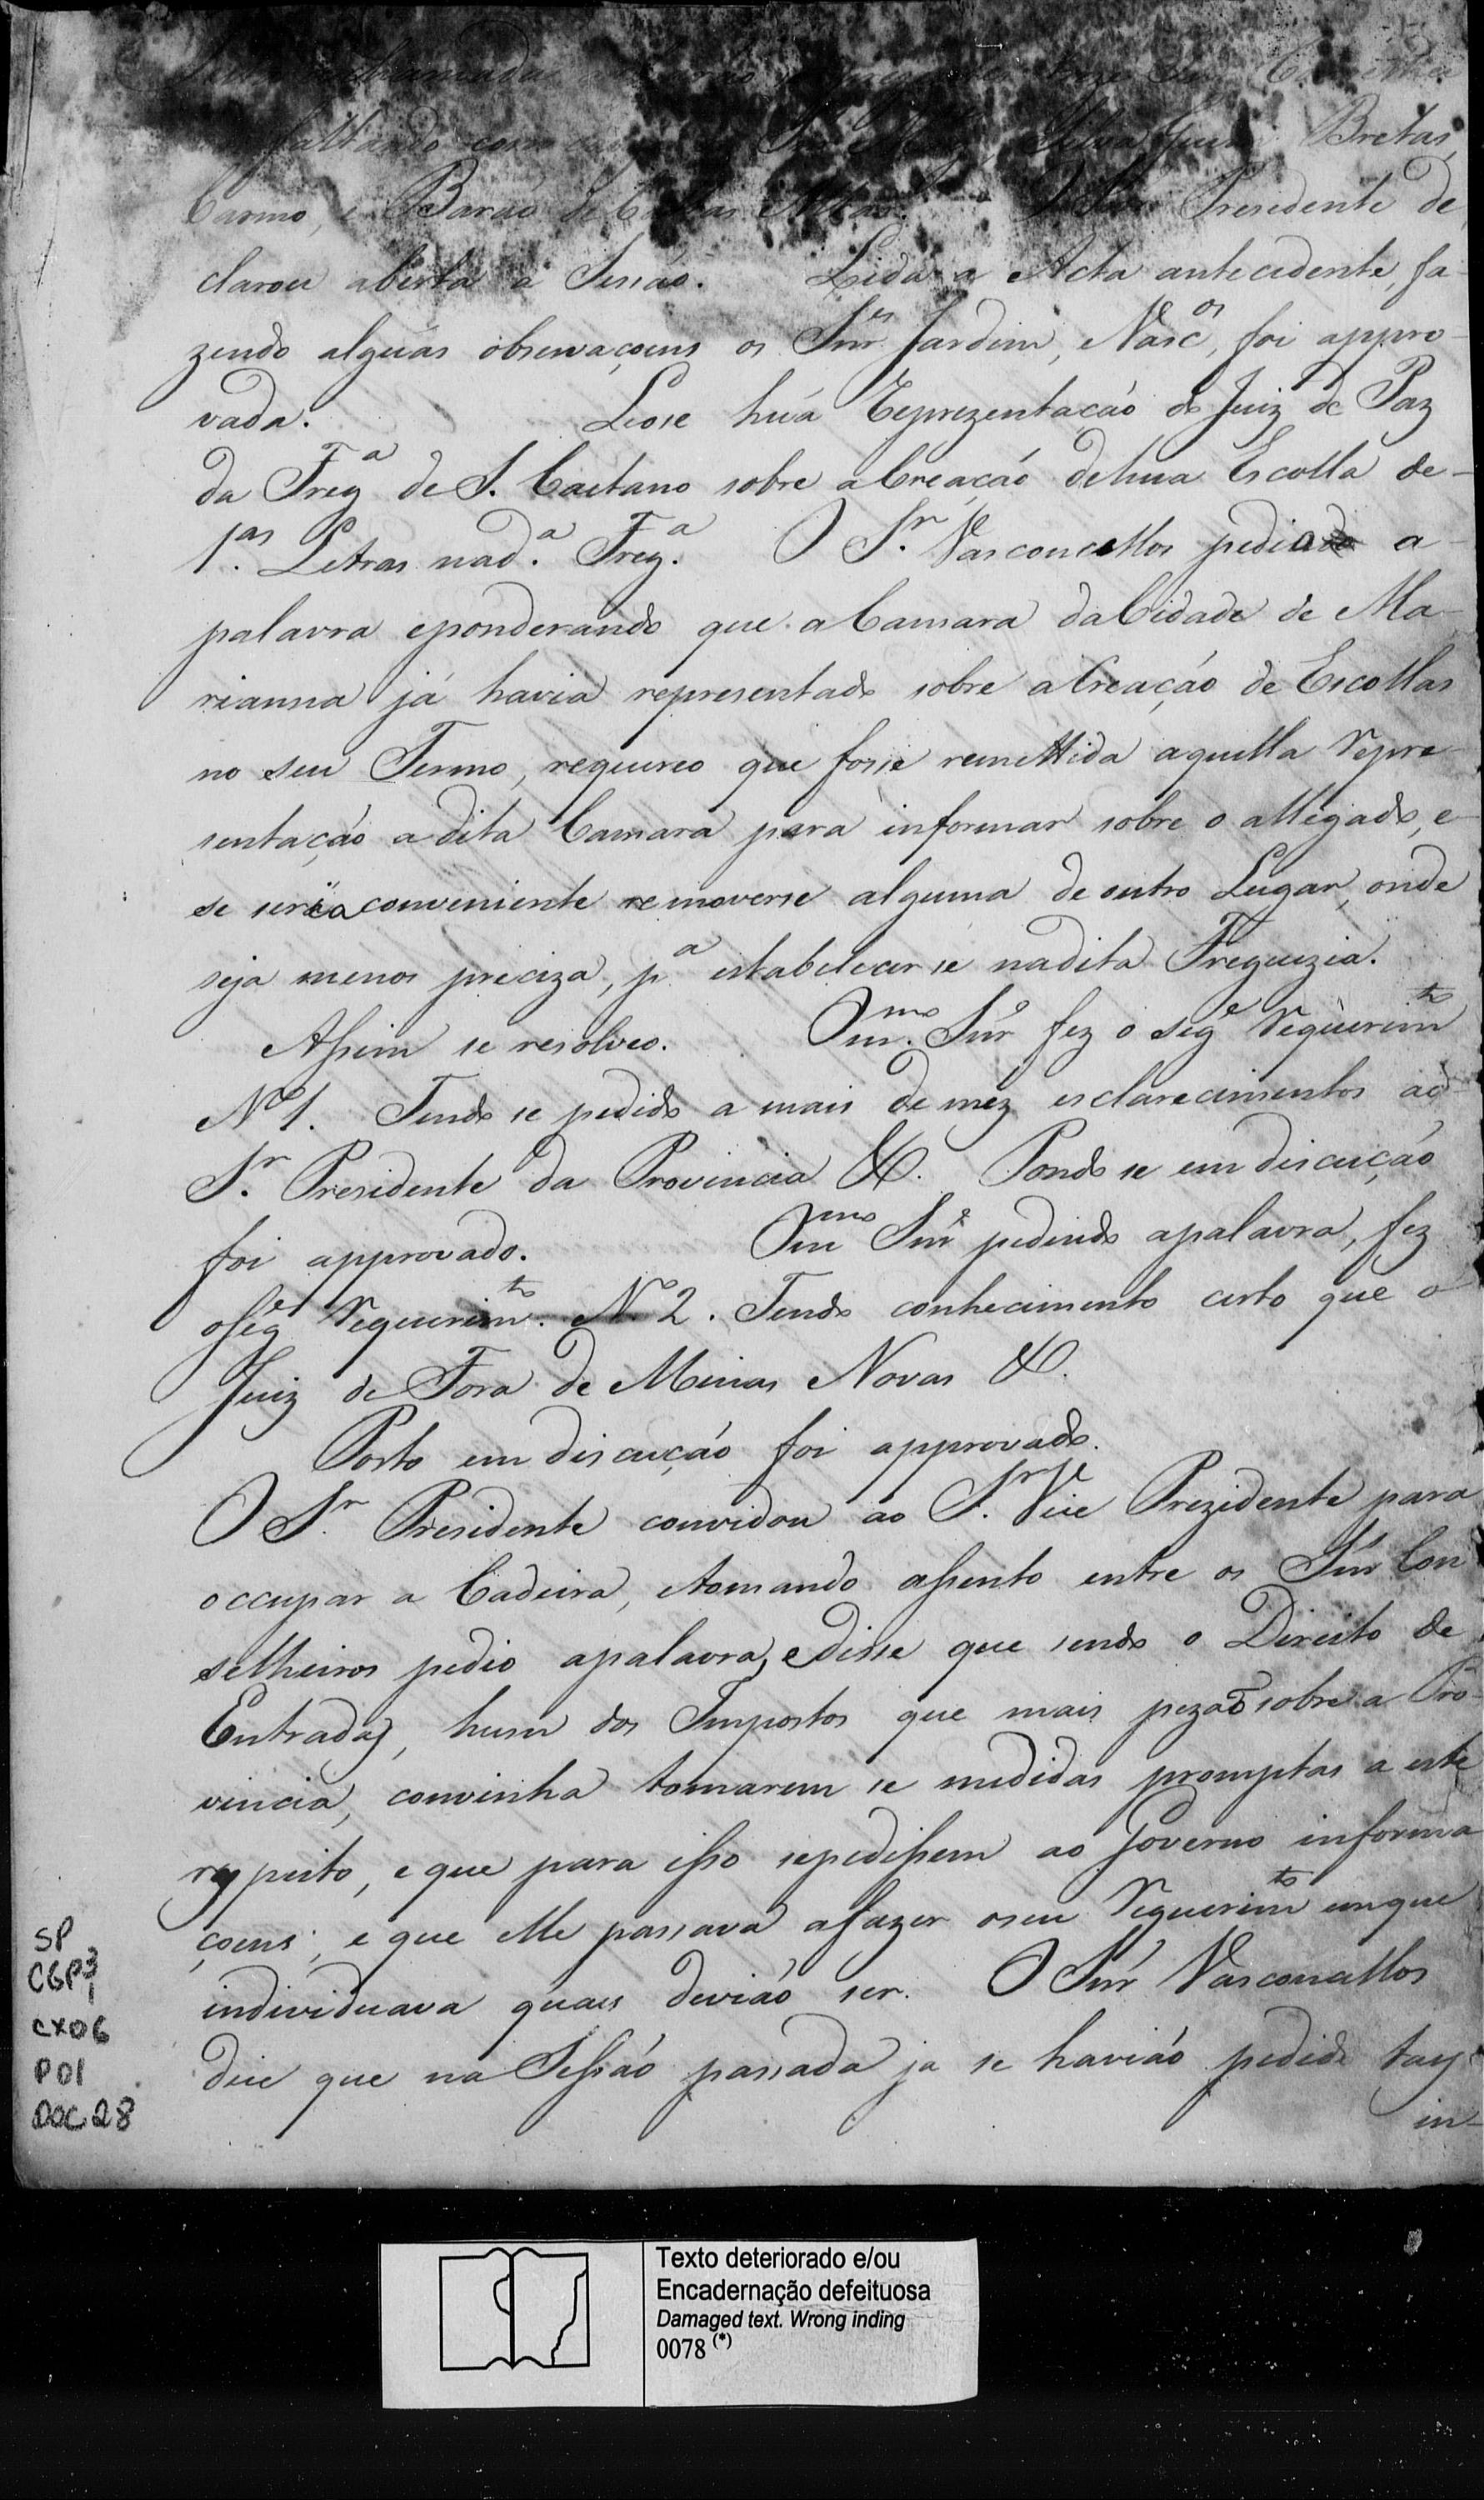 faltando com Bretas,
Carmo, e Barão de Caetas Altas. O Snr. Presidente de
clarou aberta a Sessão. Lida a Acta antecedente, fa
zendo algũas observaçoens os Snr.es Jardim, Vasc.os, foi appro
vada. Leose hũa Reprezentacão do Juiz de Paz
da Freg.a de S. Caetano sobre a Creação de hua Escolla de
1.as Letras na d.a Freg.a O S.r Vasconcellos pedio a
palavra e ponderando que a Camara da Cidade de Ma
rianna já havia representado sobre a Creação de Escollas
no seu Termo, requereo que fosse remettida aquella repre
sentação a dita Camara para informar sobre o allegado, e
se seria conveniente removerse alguma de outro Lugar, onde
seja menos preciza, p.a estabelecerse na dita Freguezia.
Assim se resolveo. O m.mo Snr. fez o seg.e requerim.to
N.o 1. Tendo se pedido a mais de mez esclarecimentos ao
S.r Presidente da Provincia &. Pondo se em discução
foi approvado. O m.mo Snr. pedindo a palavra, fez
o seg.e requerim.to N.o 2. Tendo conhecimento certo que o
Juiz de Fora de Minas Novas &.
Posto em discução foi approvado.
O S.r Presidente convidou ao S.r Vice Prezidente para
occupar a Cadeira, e tomando assento entre os Snr.s Con
selheiros pedio a palavra, e disse que sendo o Direito de
Entradas, hum dos Impostos que mais pezão sobre a Pro
vincia, convinha tomarem se medidas promptas a este
respeito, e que para isso se pedissem ao Governo informa
çoens, e que elle passava a fazer o seu requerim.to em que
individuava quaes devião ser. O Snr. Vasconcellos
dice que na Sessão passada ja se havião pedido taes
in-
SP
CGP3
1
CX06
P01
DOC 28
Texto deteriorado e/ou
Encadernação defeituosa
Damaged text. Wrong inding
0078 (*)